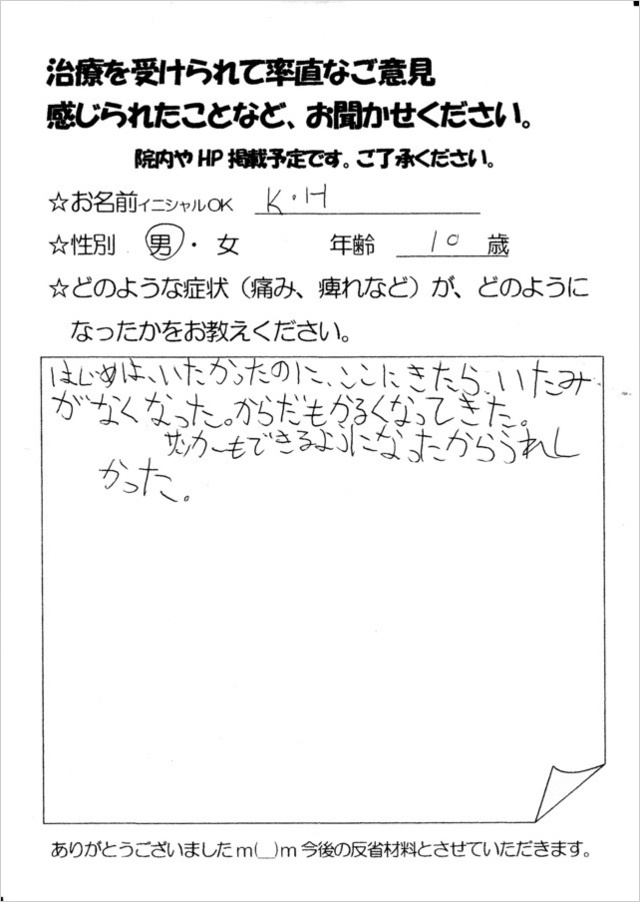 治療を受けられて率直なご意見
感じられたことなど、お聞かせください。
院内やHP掲載予定です。ご了承ください。
☆お名前イニシャルOK K.H
☆性別 男・女 年齢 10 歳
☆どのような症状（痛み、痺れなど）が、どのように
なったかをお教えください。
はじめは、いたかったのに、ここにきたら、いたみ
がなくなった。からだもかるくなってきた。
サッカーもできるようになったからうれし
かった。
ありがとうございましたm(__)m今後の反省材料とさせていただきます。